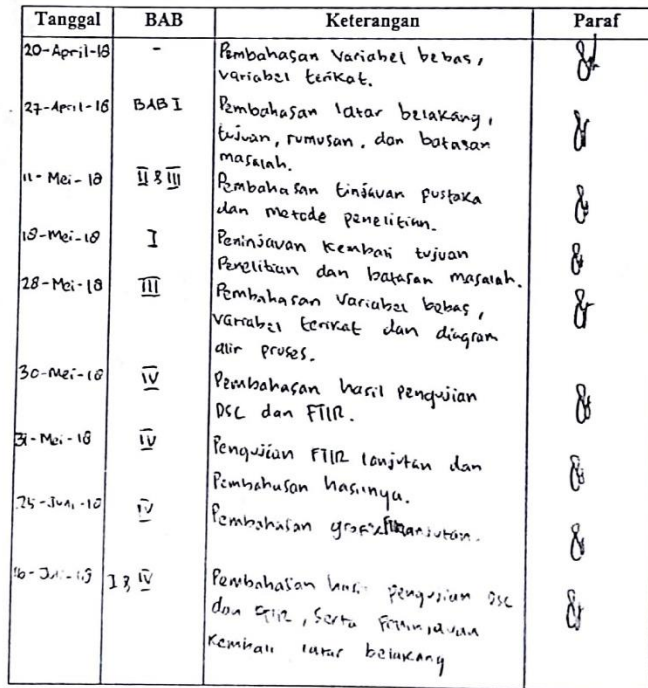 Tanggal BAB Keterangan Paraf
20-April-18 - Pembahasan Variabel bebas,
variabel terikat.
27-April-18 BAB I Pembahasan latar belakang,
tujuan, rumusan, dan batasan
masalah.
11-Mei-18 II & III Pembahasan tinjauan pustaka
dan metode penelitian.
18-Mei-18 I Peninjauan kembali tujuan
Penelitian dan batasan masalah.
28-Mei-18 III Pembahasan Variabel bebas,
variabel terikat dan diagram
alir proses.
30-Mei-18 IV Pembahasan hasil pengujian
DSC dan FTIR.
31-Mei-18 IV Pengujian FTIR lanjutan dan
Pembahasan hasilnya.
25-Juni-18 IV Pembahasan grafik lanjutan.
16-Juli-18 I & IV Pembahasan hasil pengujian DSC
dan FTIR, Serta Peninjauan
Kembali latar belakang